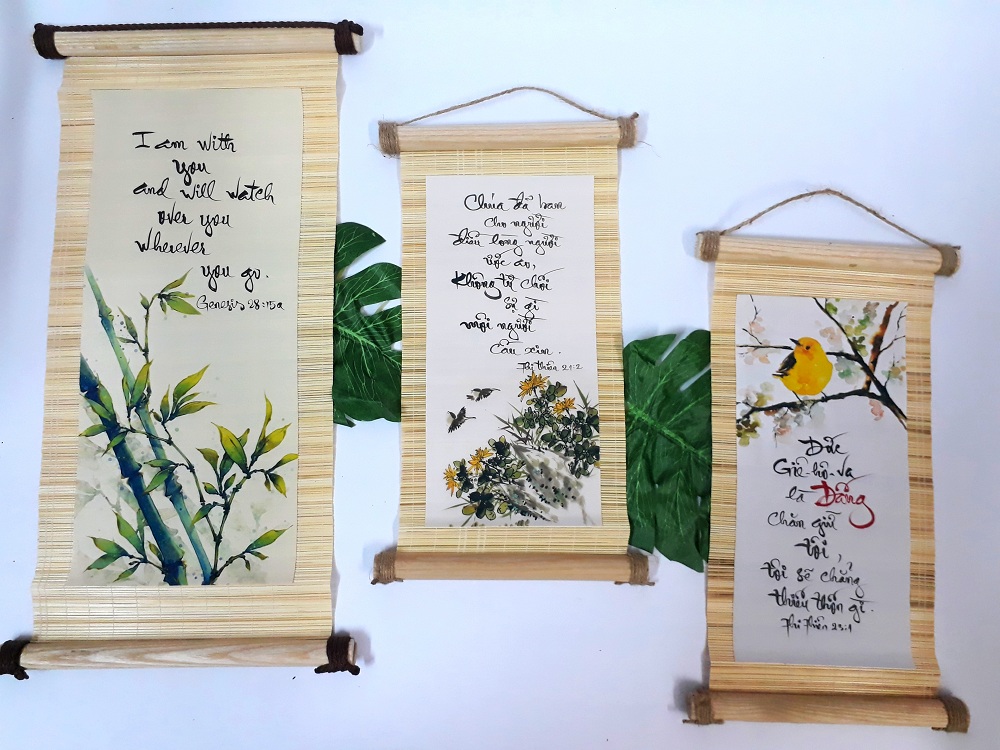 I am with
you
and will watch
over you
Wherever
you go.
Genesis 28:15a
Chúa đã ban
cho người
điều lòng người
ước ao,
Không từ chối
sự gì
môi người
cầu xin.
Thi Thiên 21:2
Đức
Giê-hô-va
là Đấng
chăn giữ
tôi,
tôi sẽ chẳng
thiếu thốn gì.
Thi Thiên 23:1